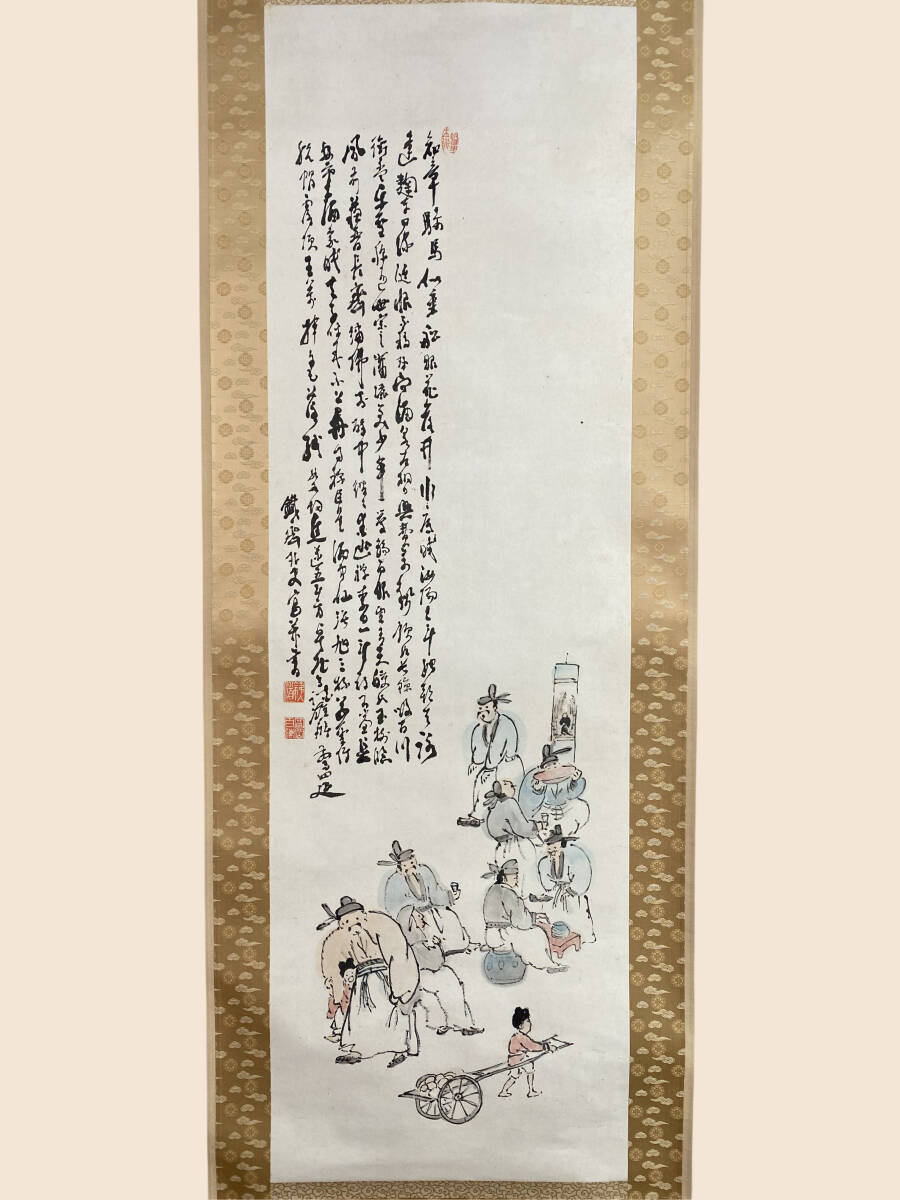 知章騎馬似乘船眼花落井水底眠汝陽三斗始朝天道
逢麴車口流涎恨不移封向酒泉左相日興費萬錢飲如長鯨吸百川
銜杯樂聖稱宗之瀟灑美少年舉觴白眼望青天皎如玉樹臨
風前蘇晉長齋繡佛前醉中往往愛逃禪李白一斗詩百篇長
安市上酒家眠天子呼來不上船自稱臣是酒中仙張旭三杯草聖傳
脫帽露頂王公前揮毫落紙如雲煙焦遂五斗方卓然高談雄辯驚四筵
鐵齋外史寫并書